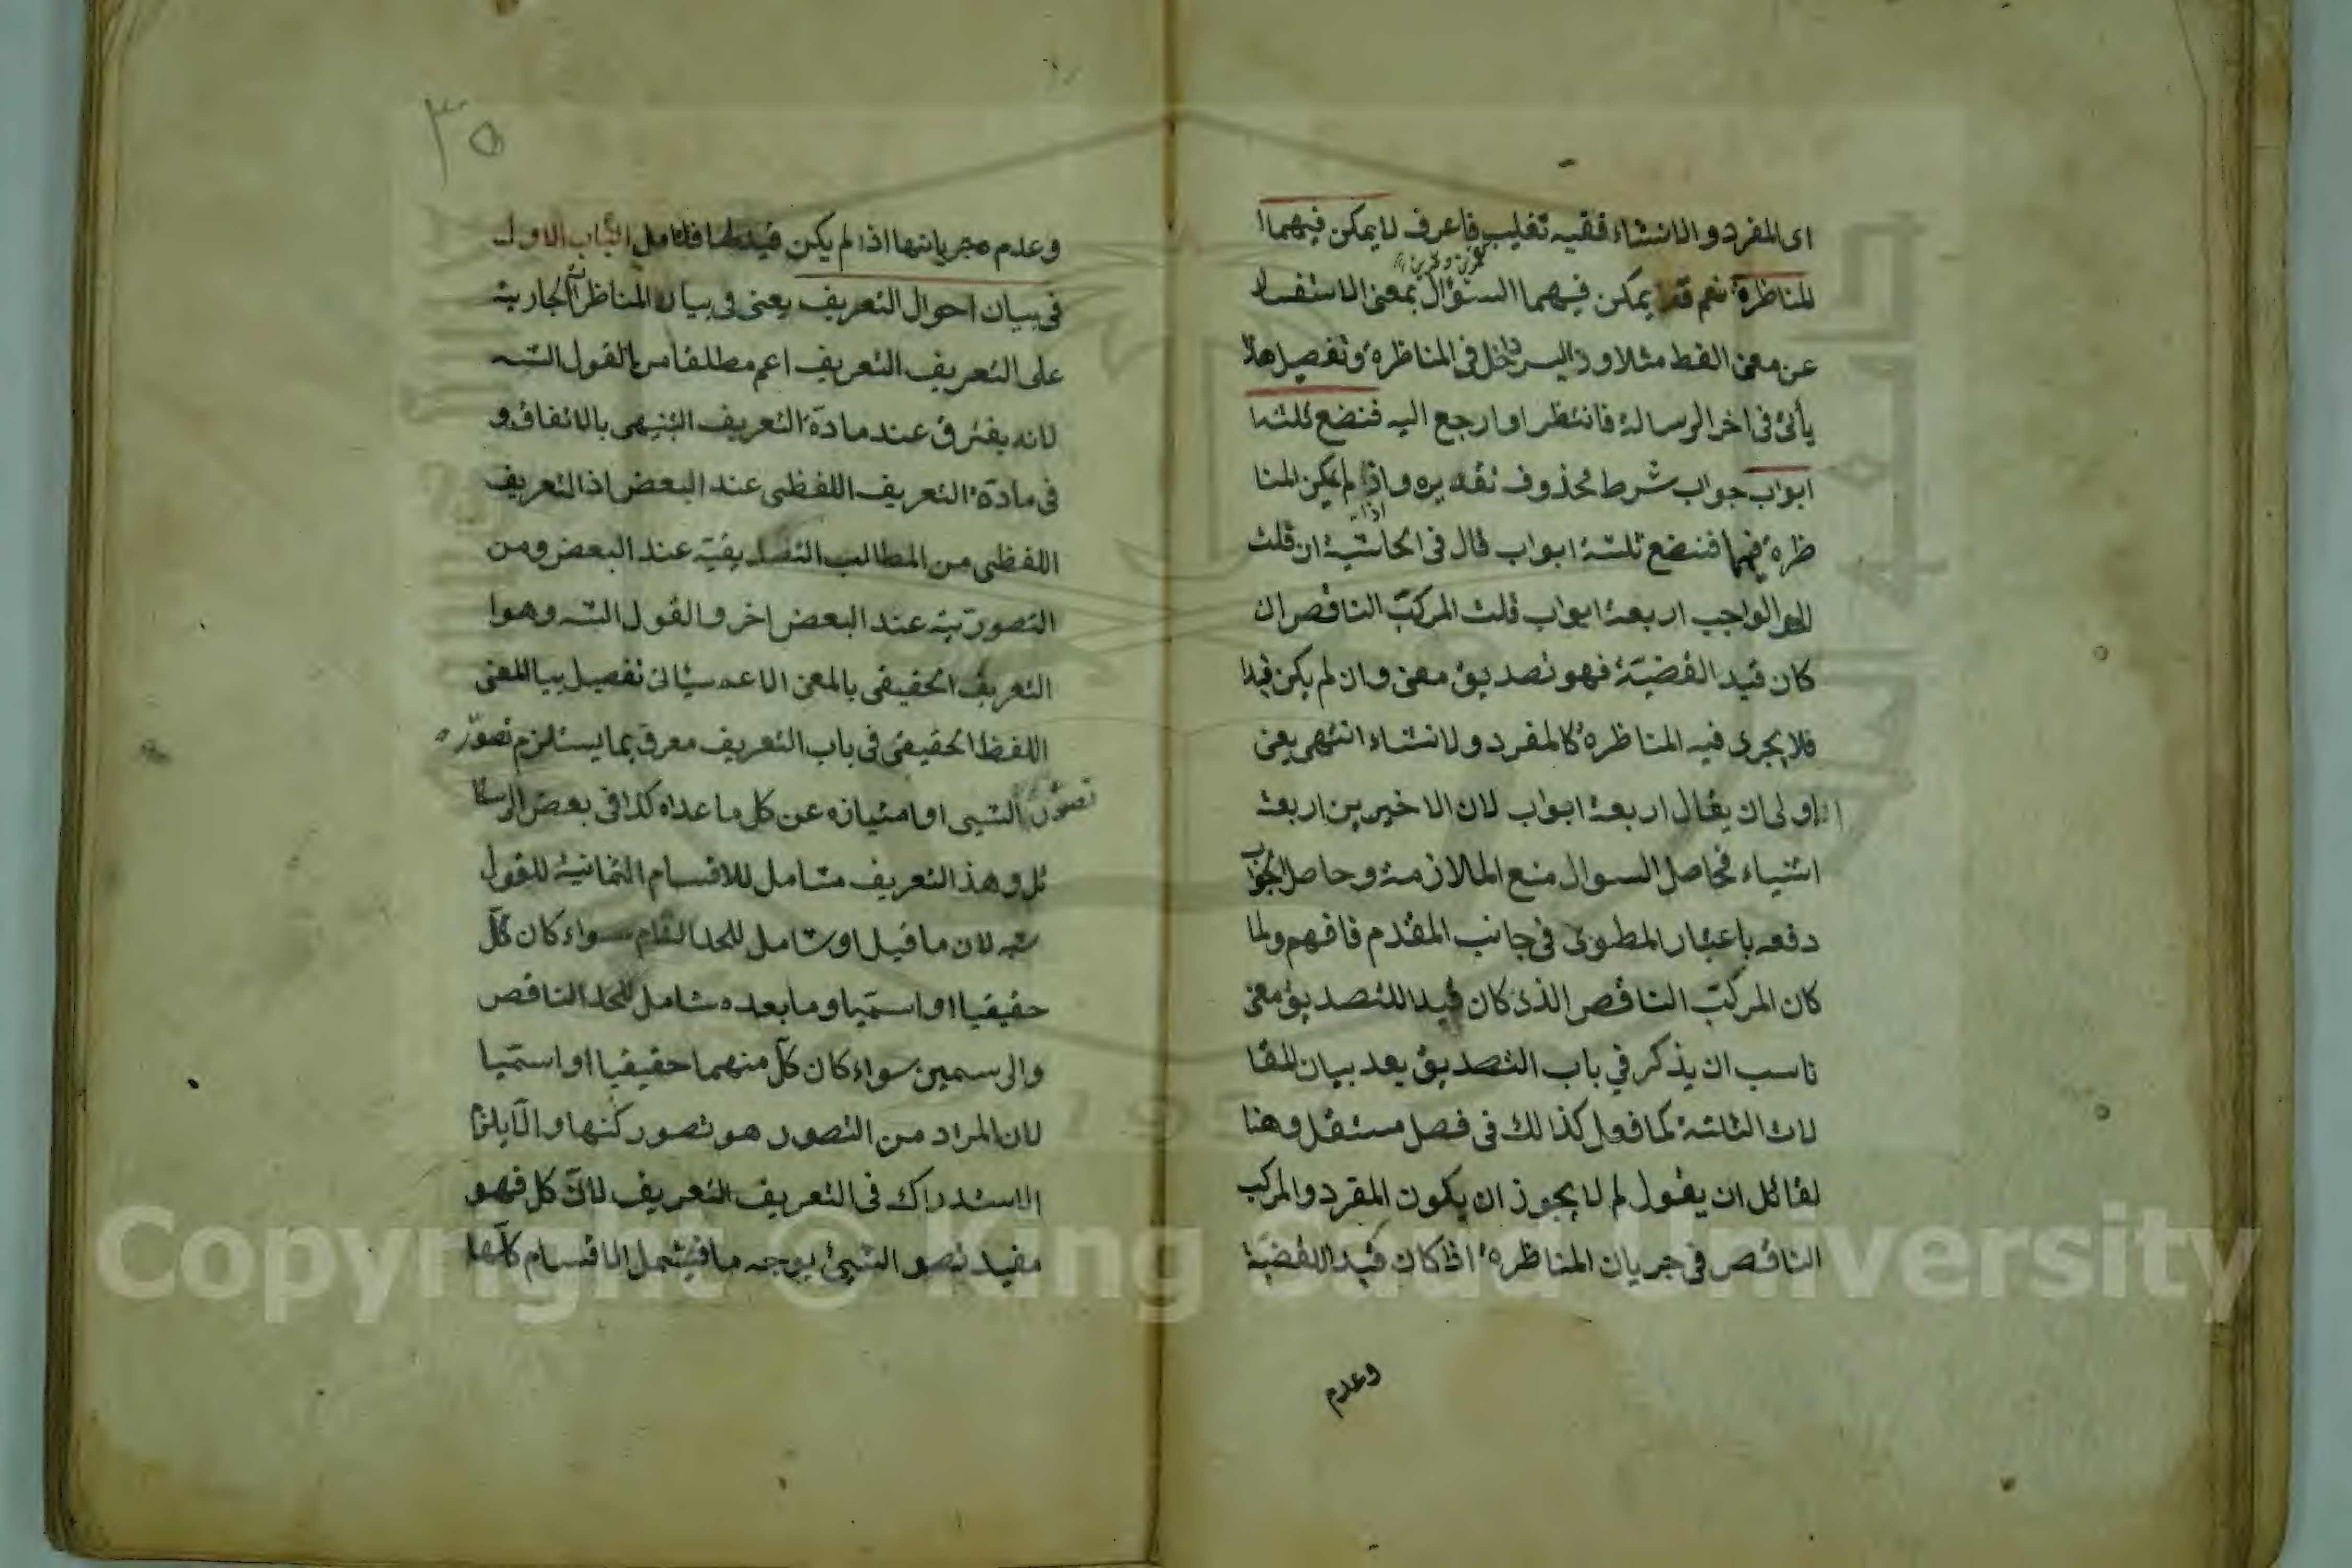 اى المفرد والانشاء ففيه تغليب فاعرف لا يمكن فيهما
المناظرة نعم قد يمكن فيهما السؤال بمعنى الاستفسار
عن معنى اللفظ مثلا و ليس داخل فى المناظرة وتفصيل هذا
يأتى فى اخر الرسالة فانتظر او ارجع اليه فنضع ثلثة
ابواب جواب شرط محذوف تقديره واذا لم يمكن المنا
ظرة فيهما فنضع ثلثة ابواب قال فى الحاشية ان قلت
الواجب اربعة ابواب قلت المركب الناقص ان
كان قيد القضية فهو تصديق معنى وان لم يكن قيدا
فلا يجرى فيه المناظرة كالمفرد ولانشاء انتهى يعنى
اولى ان يقال اربعة ابواب لان الاخيرين اربعة
اشياء فحاصل السوال منع الملازمة وحاصل الجواب
دفعه باعتبار المطوى فى جانب المقدم فافهم ولما
كان المركب الناقص الذى كان قيدا للتصديق معنى
ناسب ان يذكر في باب التصديق بعد بيان المقا
لات الثلثة كما فعل كذالك فى فصل مستقل وهنا
لقائل ان يقول لم لا يجوز ان يكون المفرد والمركب
الناقص فى جريان المناظرة اذا كان قيد القضية
وعدم
٣٥
وعدم مجريانتها اذا لم يكن قيد لها فتامل الباب الاول
فى بيان احوال التعريف يعنى فى بيان المناظرات الجارية
على التعريف التعريف اعم مطلقا من القول الشـ
لانه يفترق عند مادة التعريف التنبيهى بالاتفاق و
فى مادة التعريف اللفظى عند البعض اذ التعريف
اللفظى من المطالب التصديقية عند البعض ومن
التصورية عند البعض اخر والقول الشـ وهوا
التعريف الحقيقى بالمعنى الاعم سيأتى تفصيل بيا المعنى
اللفظ الحقيقى فى باب التعريف معرف بما يستلزم تصوره
تصور الشيى او امتيازه عن كل ما عداه كذا فى بعض الرسا
ئل وهذ التعريف شامل للاقسام الثمانية للقول
شـ لان ما قيل او شامل للحد التام سواء كان كل
حقيقيا او اسميا وما بعده شامل للحد الناقص
والرسمين سواء كان كل منهما حقيقيا او اسميا
لان المراد من التصور هو تصور كنها والا يلزم
الاستدراك فى التعريف التعريف لان كل فهو
مفيد تصو الشيئ بوجه ما فيشمل الاقسام كلها